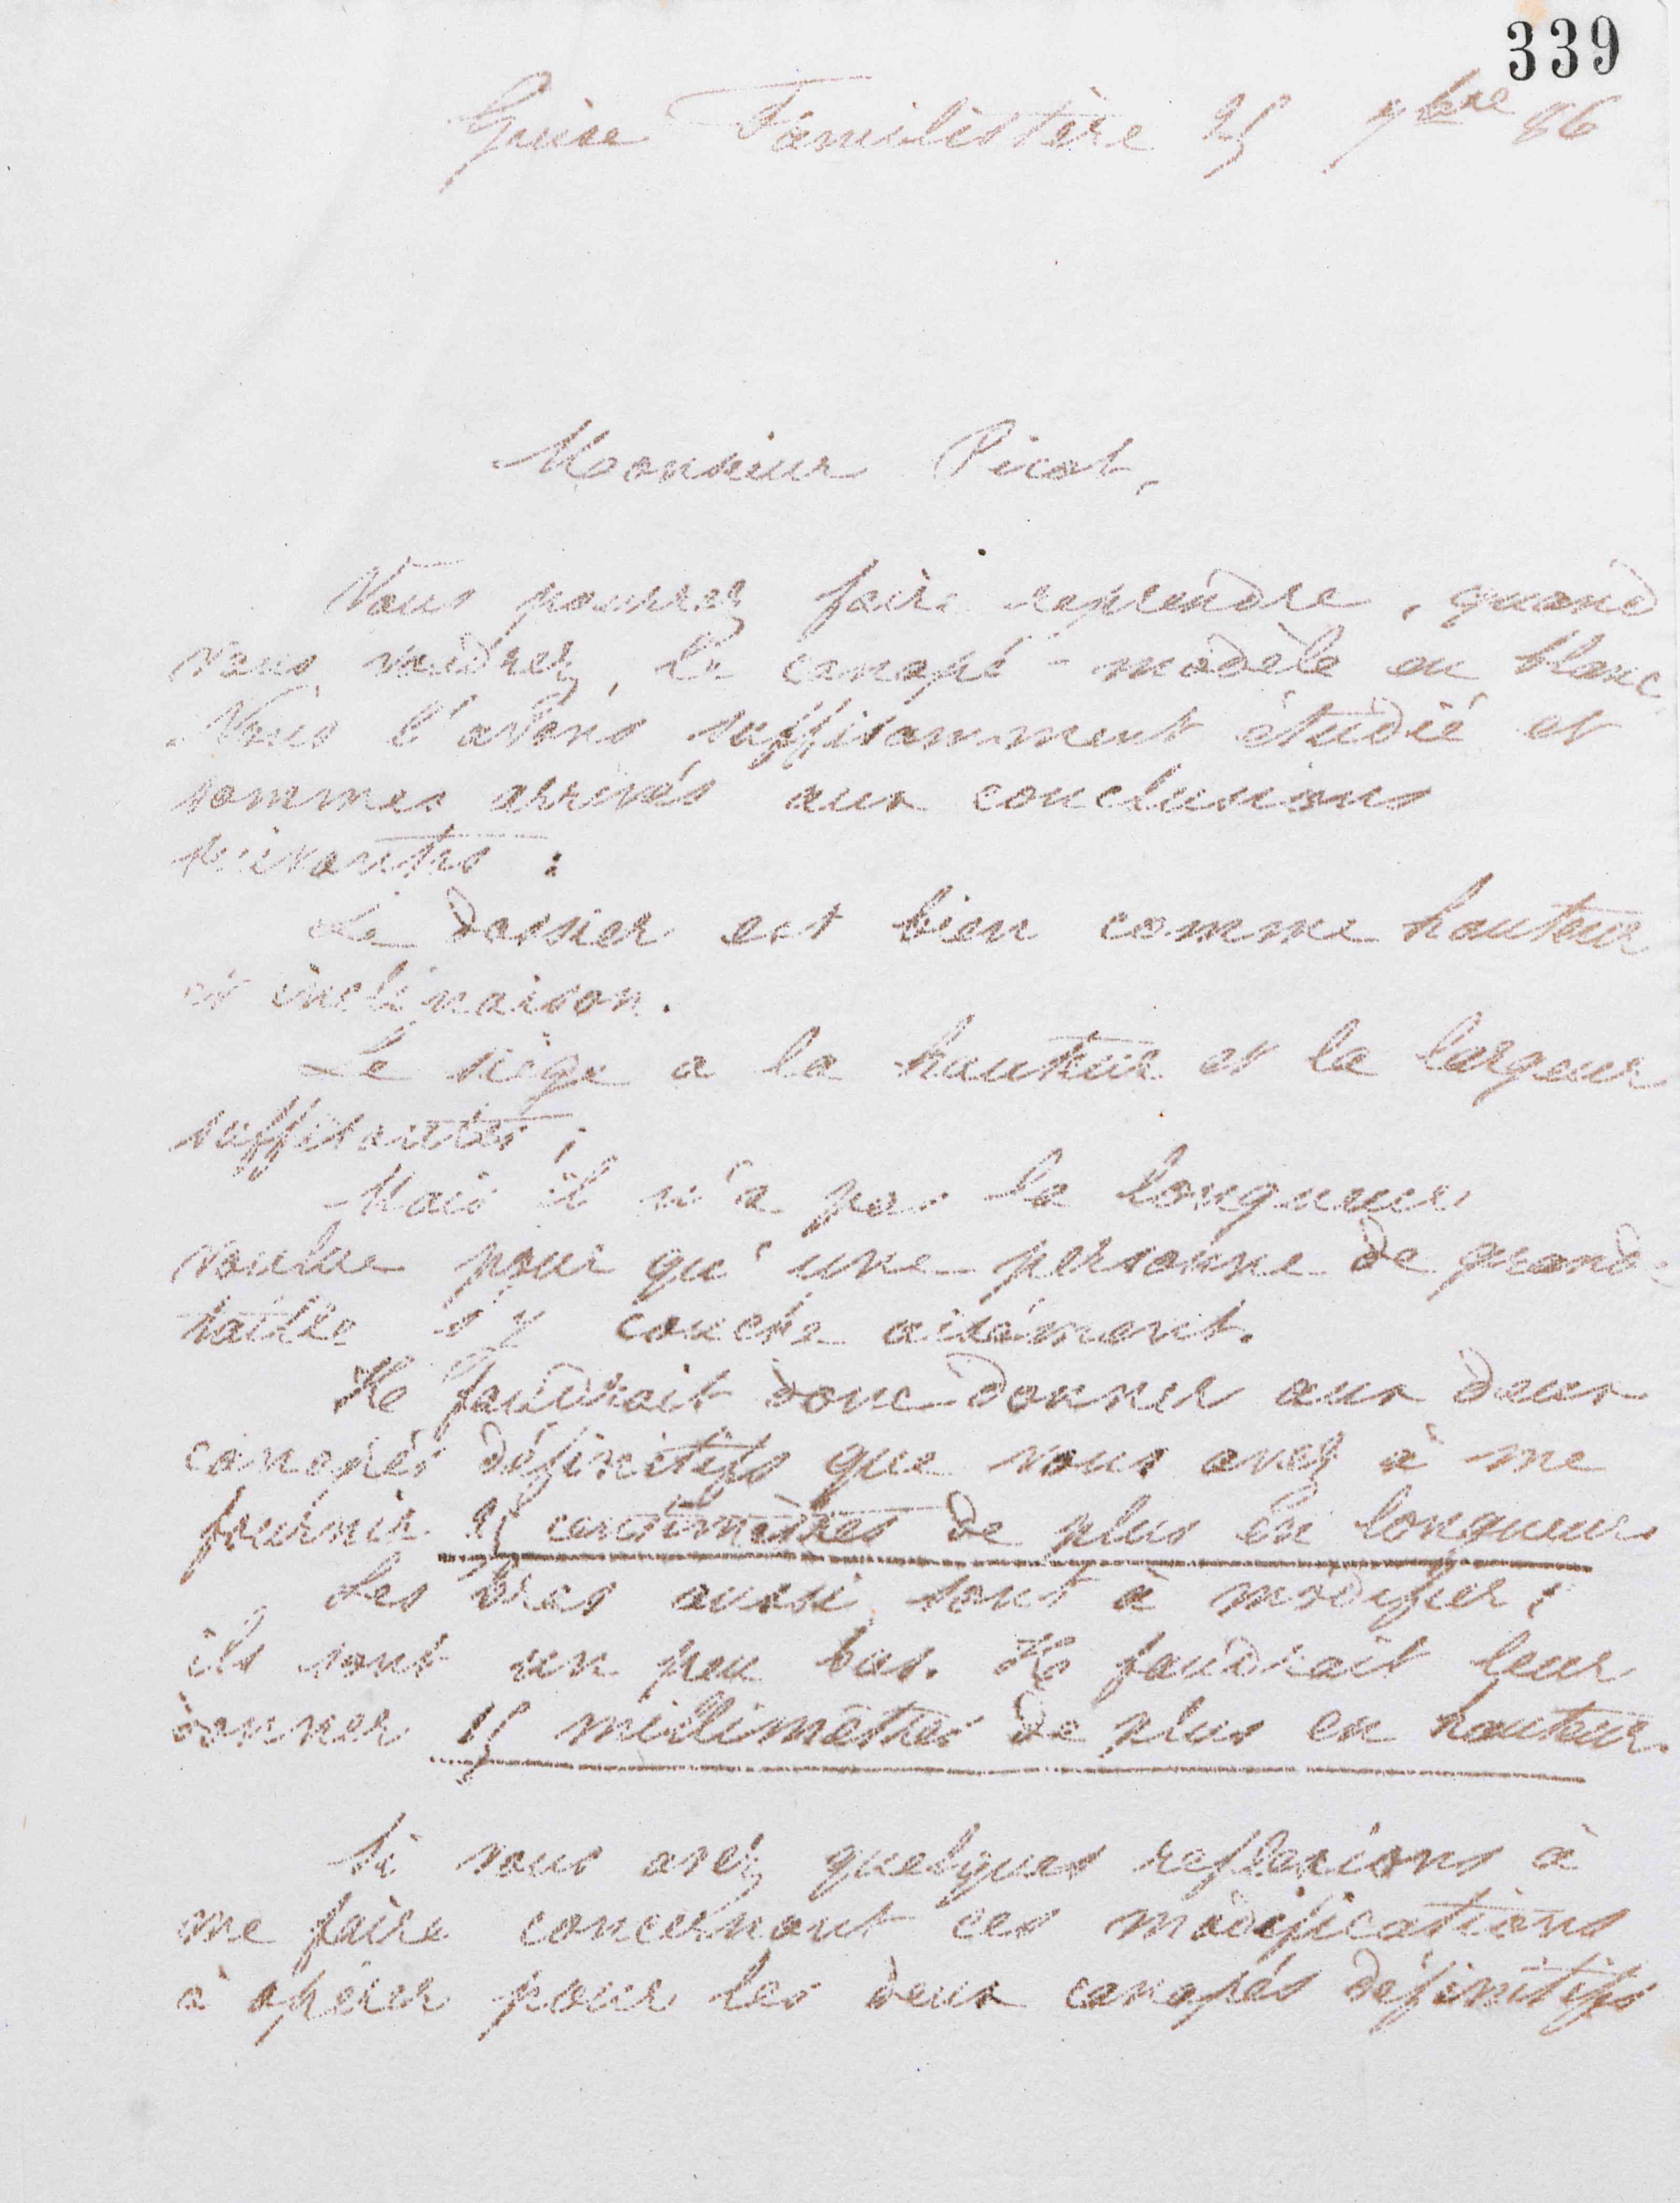 339
Guise Familistère 25 7bre 86
Monsieur Picot,
Vous pourrez faire reprendre, quand
vous voudrez, le canapé-modèle en blanc
Nous l'avons suffisamment étudié et
sommes arrivés aux conclusions
suivantes :
Le dossier est bien comme hauteur
et inclinaison.
Le siège a la hauteur et la largeur
suffisantes ;
Mais il n'a pas la longueur
voulue pour qu'une personne de grande
taille s'y couche aisément.
Il faudrait donc donner aux deux
canapés définitifs que vous avez à me
fournir 25 centimètres de plus en longueur
Les bras aussi sont à modifier ;
ils sont un peu bas. Il faudrait leur
donner 15 millimètres de plus en hauteur.
Si vous avez quelques reflexions à
me faire concernant ces modifications
à opérer pour les deux canapés définitifs